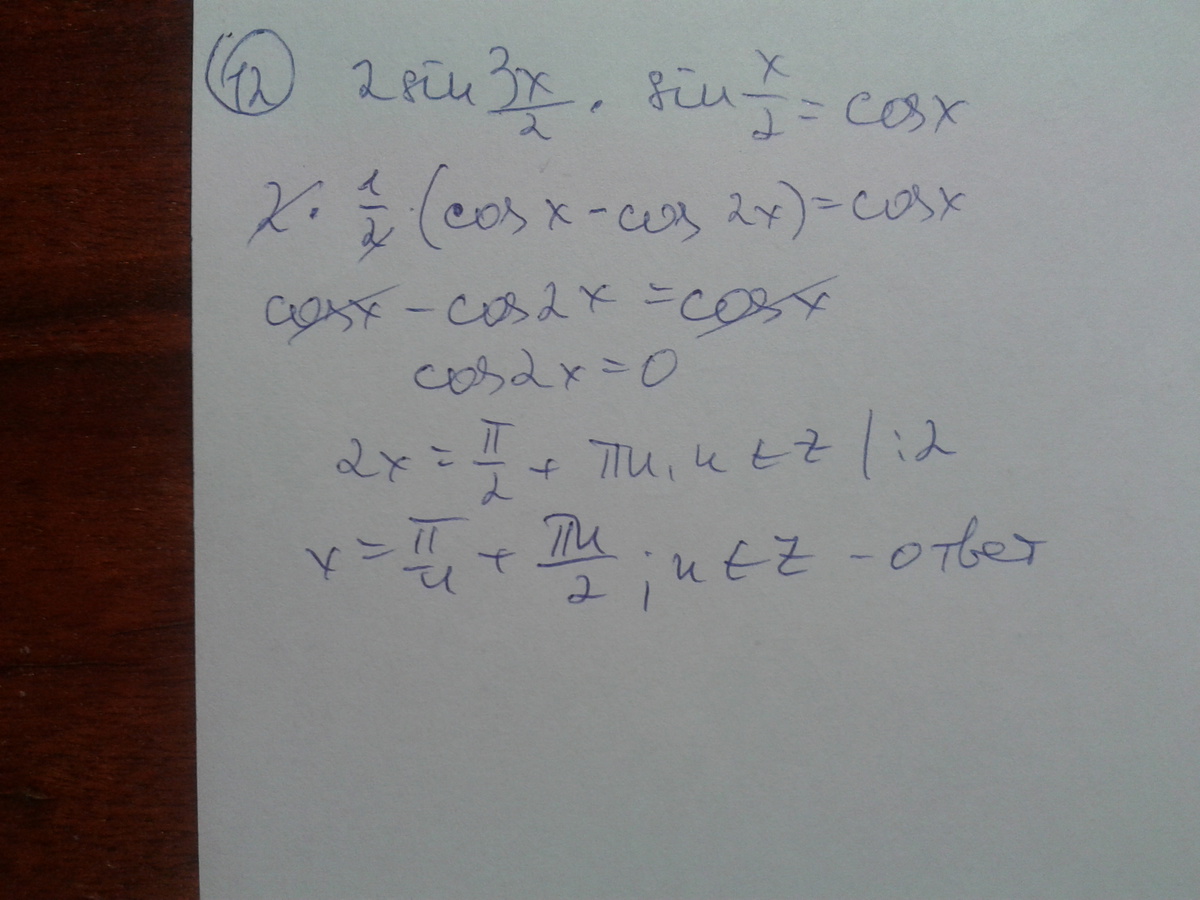 12 2 sin 3x/2 · sin x/2 = cos x
2 · 1/2 · (cos x - cos 2x) = cos x
cos x - cos 2x = cos x
cos 2x = 0
2x = π/2 + πn, n ∈ Z | :2
x = π/4 + πn/2 ; n ∈ Z - ответ